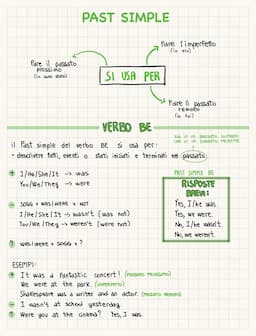 PAST SIMPLE
Fare il passato
prossimo
Fare l'imperfetto
SI USA PER
Fare il passato
remoto
VERBO BE
il Past simple del verbo BE si usa per:
• descrivere fatti, eventi o stati iniziati e terminati nel passato
PAST SIMPLE BE
RISPOSTE
BREVI:
Yes, I/he was.
Yes, we were.
No, I/he wasn't.
No, we weren't.
+ I/He/She/It → was
You/We/They → were
- SOGG + was/were + NOT
I/He/She/It → wasn't (was not)
You/We/They → weren't (were not)
? was/were + SOGG + ?
ESEMPI:
+ It was a fantastic concert! (PASSATO PROSSIMO)
We were at the park. (IMPERFETTO)
Shakespeare was a writer and an actor. (PASSATO REMOTO)
- I wasn't at school yesterday.
? Were you at the cinema? Yes, I was.